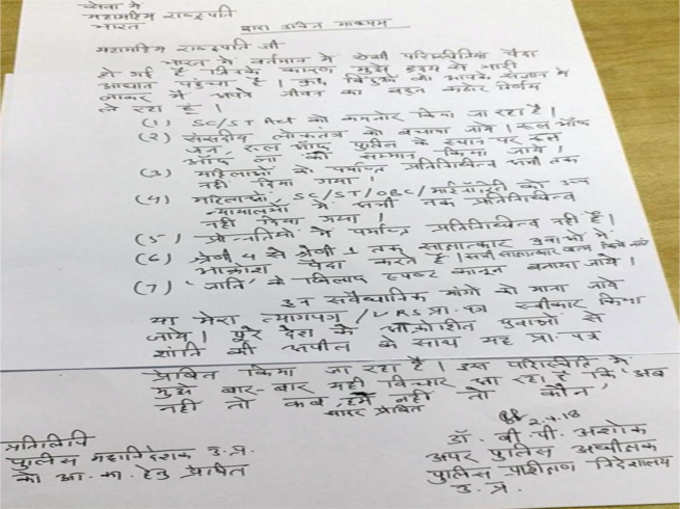 सेवा में
महामहिम राष्ट्रपति
भारत
द्वारा उचित माध्यम
महामहिम राष्ट्रपति जी
भारत में वर्तमान में ऐसी परिस्थितियां पैदा
हो गई हैं जिनके कारण मुझे हृदय से भारी
आघात पहुंचा है। कुछ बिंदुओं को आपके संज्ञान में
लाकर मैं अपने जीवन का बहुत कठोर निर्णय
ले रहा हूँ।
(1) SC/ST Act को कमजोर किया जा रहा है।
(2) संसदीय लोकतंत्र को बचाया जाये। रूल ऑफ
जज, रूल ऑफ पुलिस के स्थान पर रूल
ऑफ लॉ का सम्मान किया जाये।
(3) महिलाओं को पर्याप्त प्रतिनिधित्व अभी तक
नहीं दिया गया।
(4) महिलाओं, SC/ST/OBC/माईनॉरिटी को उच्च
न्यायालयों में अभी तक प्रतिनिधित्व
नहीं दिया गया।
(5) प्रोन्नतियों में पर्याप्त प्रतिनिधित्व नहीं है।
(6) श्रेणी 4 से श्रेणी 1 तक साक्षात्कार युवाओं में
आक्रोश पैदा करते हैं। सभी साक्षात्कार खत्म किये जायें
(7) 'जाति' के खिलाफ स्पष्ट कानून बनाया जाये।
इन संवैधानिक मांगों को माना जाये
या मेरा त्यागपत्र/VRS प्रा. पत्र स्वीकार किया
जाये। पूरे देश के आक्रोशित युवाओं से
शांति की अपील के साथ यह प्रा. पत्र
प्रेषित किया जा रहा है। इस परिस्थिति में
मुझे बार-बार यही विचार आ रहा है कि 'अब
नहीं तो कब, हम नहीं तो कौन'
सादर प्रेषित
2.4.18
डॉ. बी. पी. अशोक
अपर पुलिस अधीक्षक
पुलिस प्रशिक्षण निदेशालय
उ. प्र.
प्रतिलिपि
पुलिस महानिदेशक उ. प्र.
को आ. का. हेतु प्रेषित